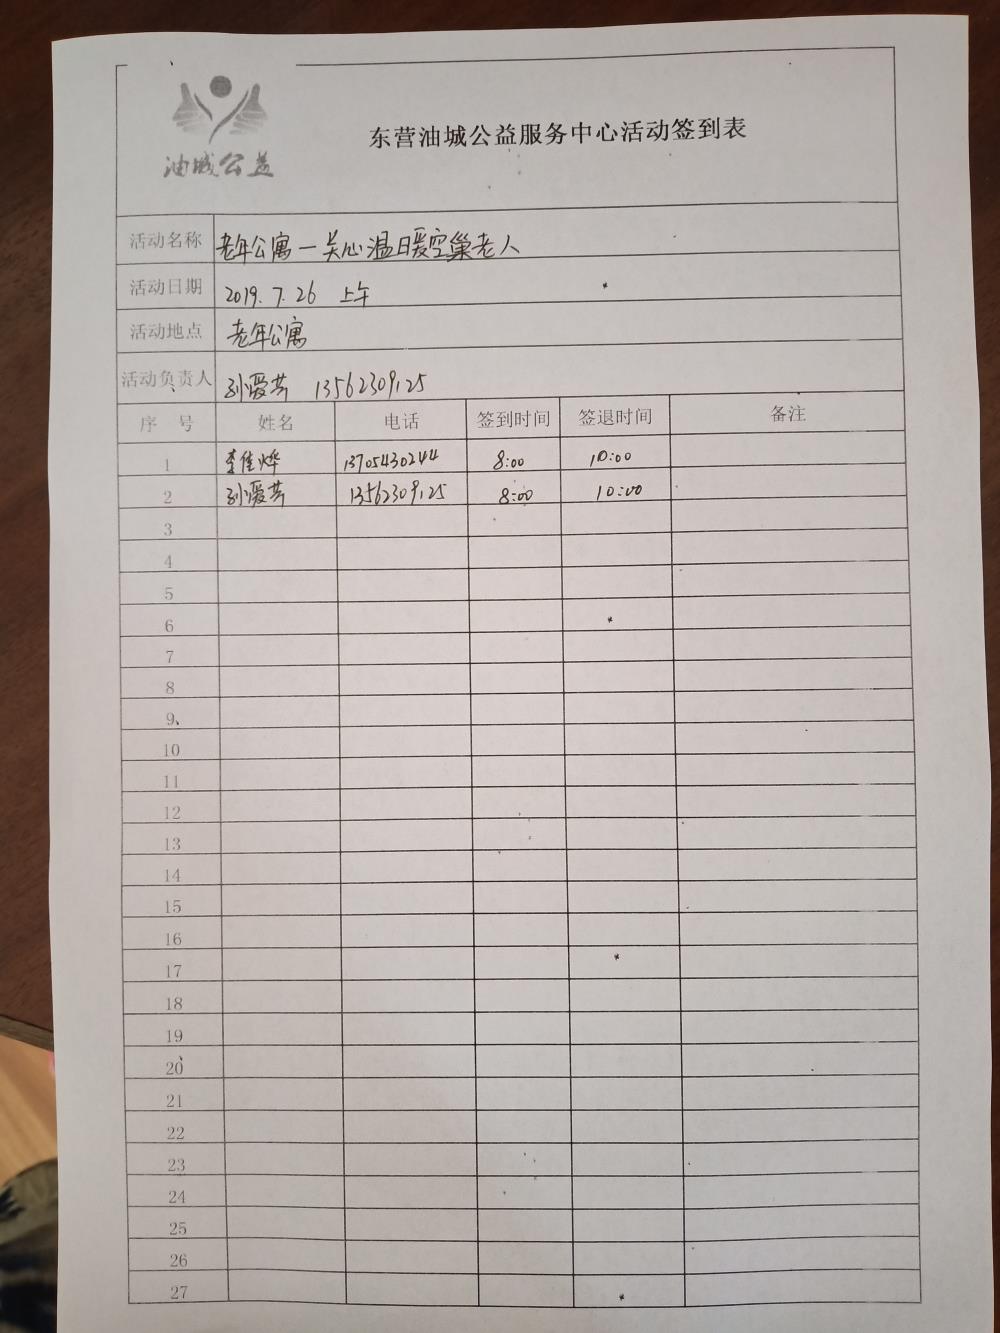 油城公益
东营油城公益服务中心活动签到表
活动名称 老年公寓—关心温暖空巢老人
活动日期 2019.7.26 上午
活动地点 老年公寓
活动负责人 孙爱芹 13562309125
序 号 姓名 电话 签到时间 签退时间 备注
1 李佳烨 13705430244 8:00 10:00
2 孙爱芹 13562309125 8:00 10:00
3
4
5
6
7
8
9
10
11
12
13
14
15
16
17
18
19
20
21
22
23
24
25
26
27